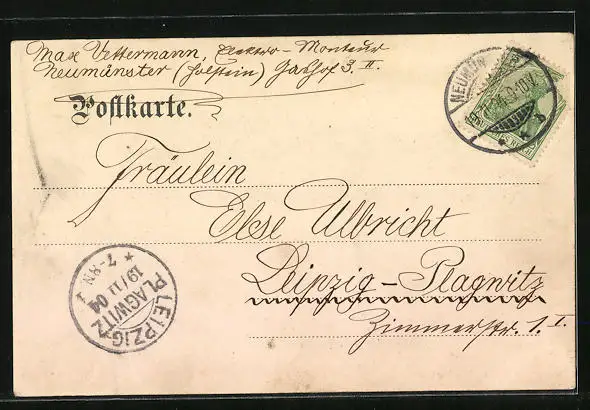 Max Vettermann, Elektro-Monteur
Neumünster (Holstein) Gashof 3. II.
Postkarte.
Fräulein
Else Ulbricht
Leipzig-Plagwitz
Zimmerstr. 1. I.
NEUMÜN
9-10V.
b
LEIPZIG
PLAGWITZ
19/11 04
7-8N